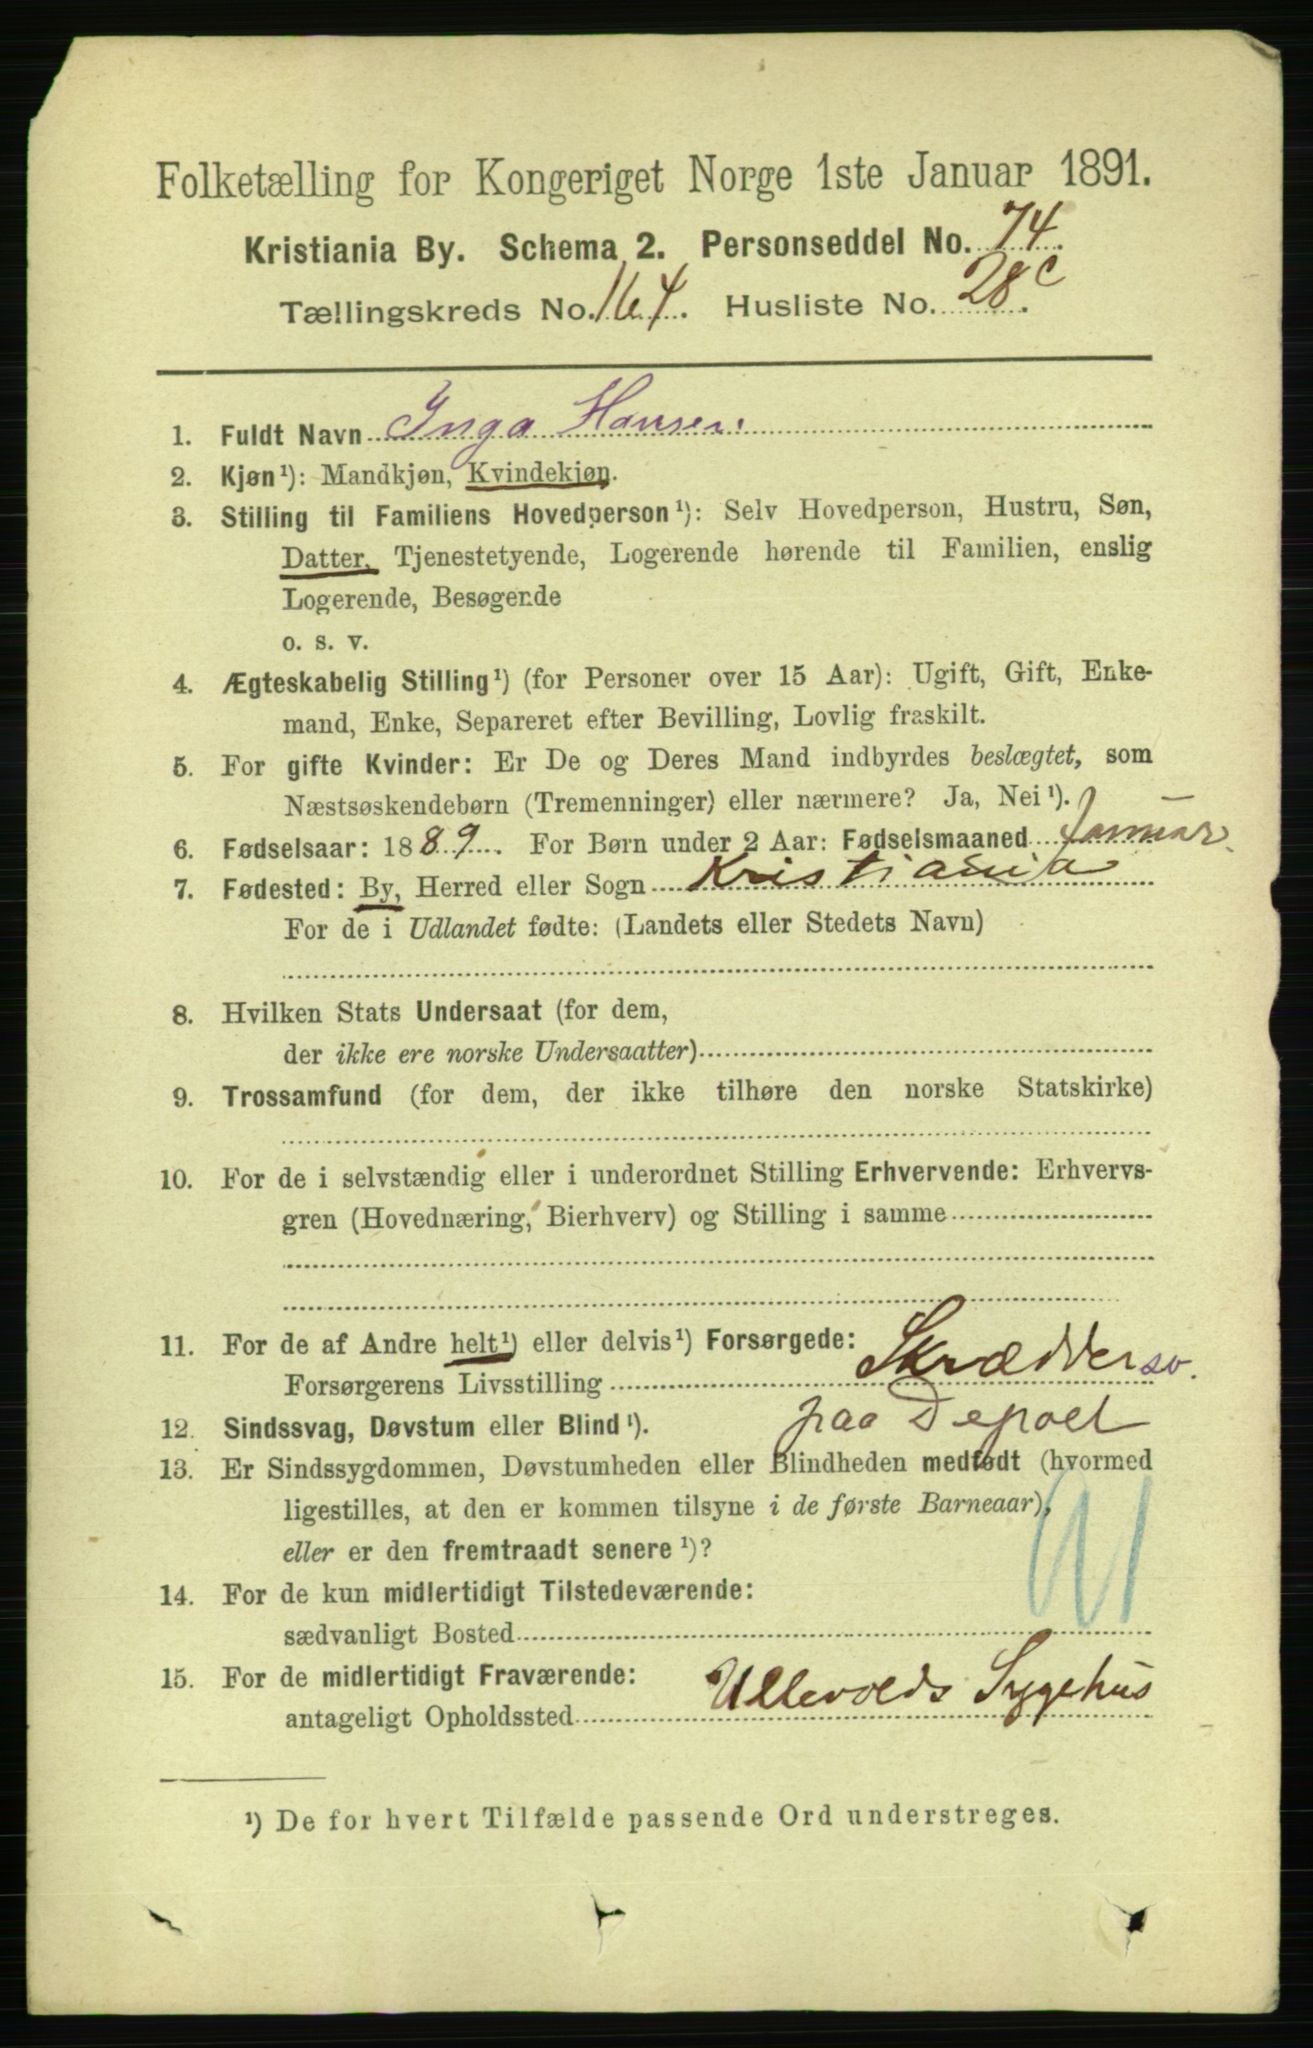 Folketælling for Kongeriget Norge 1ste Januar 1891.
Kristiania By. Schema 2. Personseddel No. 74.
Tællingskreds No. 164. Husliste No. 28c.
1. Fuldt Navn Inga Hansen.
2. Kjøn¹): Mandkjøn, Kvindekjøn.
3. Stilling til Familiens Hovedperson¹): Selv Hovedperson, Hustru, Søn,
Datter, Tjenestetyende, Logerende hørende til Familien, enslig
Logerende, Besøgende
o. s. v.
4. Ægteskabelig Stilling¹) (for Personer over 15 Aar): Ugift, Gift, Enke-
mand, Enke, Separeret efter Bevilling, Lovlig fraskilt.
5. For gifte Kvinder: Er De og Deres Mand indbyrdes beslægtet, som
Næstsøskendebørn (Tremenninger) eller nærmere? Ja, Nei¹).
6. Fødselsaar: 1889. For Børn under 2 Aar: Fødselsmaaned Januar.
7. Fødested: By, Herred eller Sogn Kristiania
For de i Udlandet fødte: (Landets eller Stedets Navn)
8. Hvilken Stats Undersaat (for dem,
der ikke ere norske Undersaatter)
9. Trossamfund (for dem, der ikke tilhøre den norske Statskirke)
10. For de i selvstændig eller i underordnet Stilling Erhvervende: Erhvervs-
gren (Hovednæring, Bierhverv) og Stilling i samme
11. For de af Andre helt¹) eller delvis¹) Forsørgede:
Forsørgerens Livsstilling Skrædder sv.
12. Sindssvag, Døvstum eller Blind¹). paa Depoet
13. Er Sindssygdommen, Døvstumheden eller Blindheden medfødt (hvormed
ligestilles, at den er kommen tilsyne i de første Barneaar),
eller er den fremtraadt senere¹)?
14. For de kun midlertidigt Tilstedeværende:
sædvanligt Bosted
15. For de midlertidigt Fraværende:
antageligt Opholdssted Ullevolds Sygehus
¹) De for hvert Tilfælde passende Ord understreges.